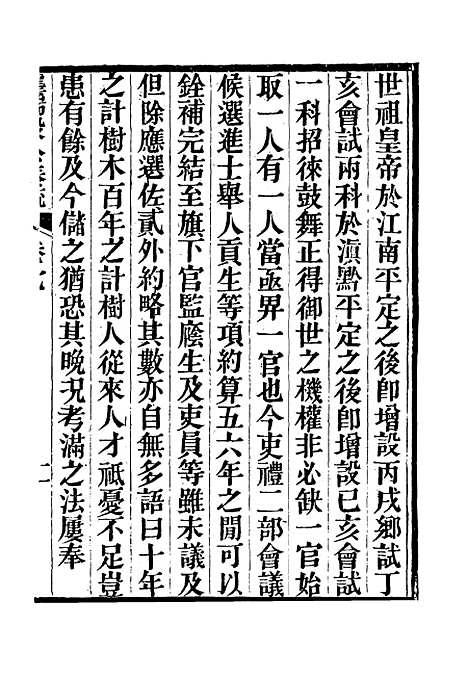 世祖皇帝於江南平定之後卽增設丙戌鄉試丁
亥會試兩科於滇黔平定之後卽增設己亥會試
一科招徠鼓舞正得御世之機權非必缺一官始
取一人有一人當亟畀一官也今吏禮二部會議
候選進士舉人貢生等項約算五六年之閒可以
銓補完結至旗下官監廕生及吏員等雖未議及
但除應選佐貳外約略其數亦自無多語曰十年
之計樹木百年之計樹人從來人才祗憂不足豈
患有餘及今儲之猶恐其晚况考滿之法屢奉
二